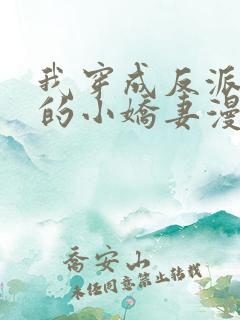 我穿成反派
的小嬌妻漫
喬安山
未经同意禁止转载